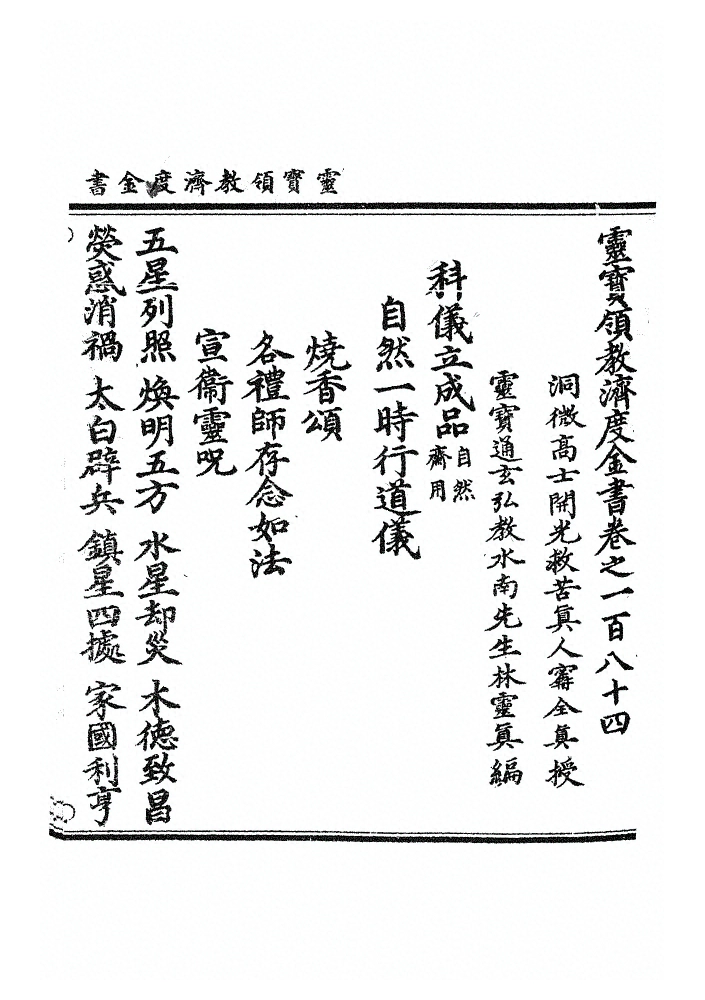 靈寶領教濟度金書
靈寶領教濟度金書卷之一百八十四
洞微高士開光救苦眞人甯全眞授
靈寶通玄弘教水南先生林靈眞編
科儀立成品 自然齋用
自然一時行道儀
燒香頌
各禮師存念如法
宣衞靈呪
五星列照 煥明五方 水星却災 木德致昌
熒惑消禍 太白辟兵 鎮星四據 家國利亨